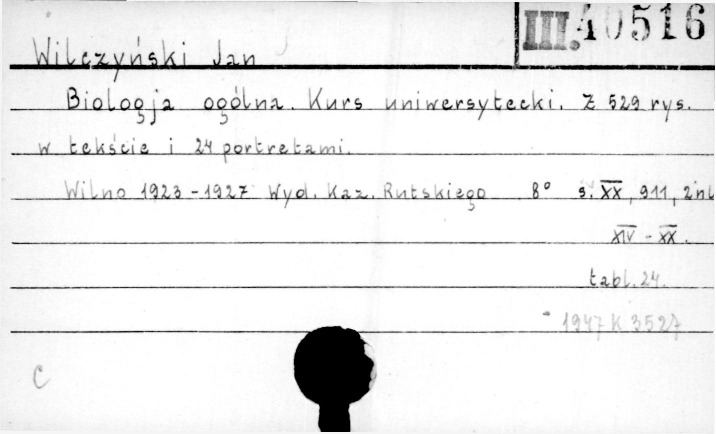 III. 40516
Wilczyński Jan
Biologja ogólna. Kurs uniwersytecki. Z 529 rys.
w tekście i 24 portretami.
Wilno 1923-1927 Wyd. Kaz. Rutskiego 8° s. XX, 911, 2nl
XIV - XX.
tabl. 24.
1947 K 3527
C